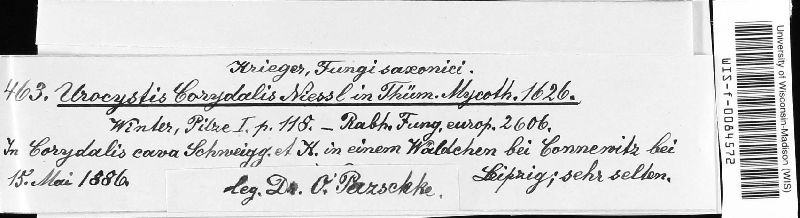 Krieger, Fungi saxonici.
463. Urocystis Corydalis Niessl in Thüm. Mycoth. 1626.
Winter, Pilze I. p. 118. – Rabh. Fung. europ. 2606.
In Corydalis cava Schweigg. et K. in einem Wäldchen bei Connewitz bei
15. Mai 1886. leg. Dr. O. Pazschke. Leipzig; sehr selten.
University of Wisconsin-Madison (WIS)
WIS-f-0084572